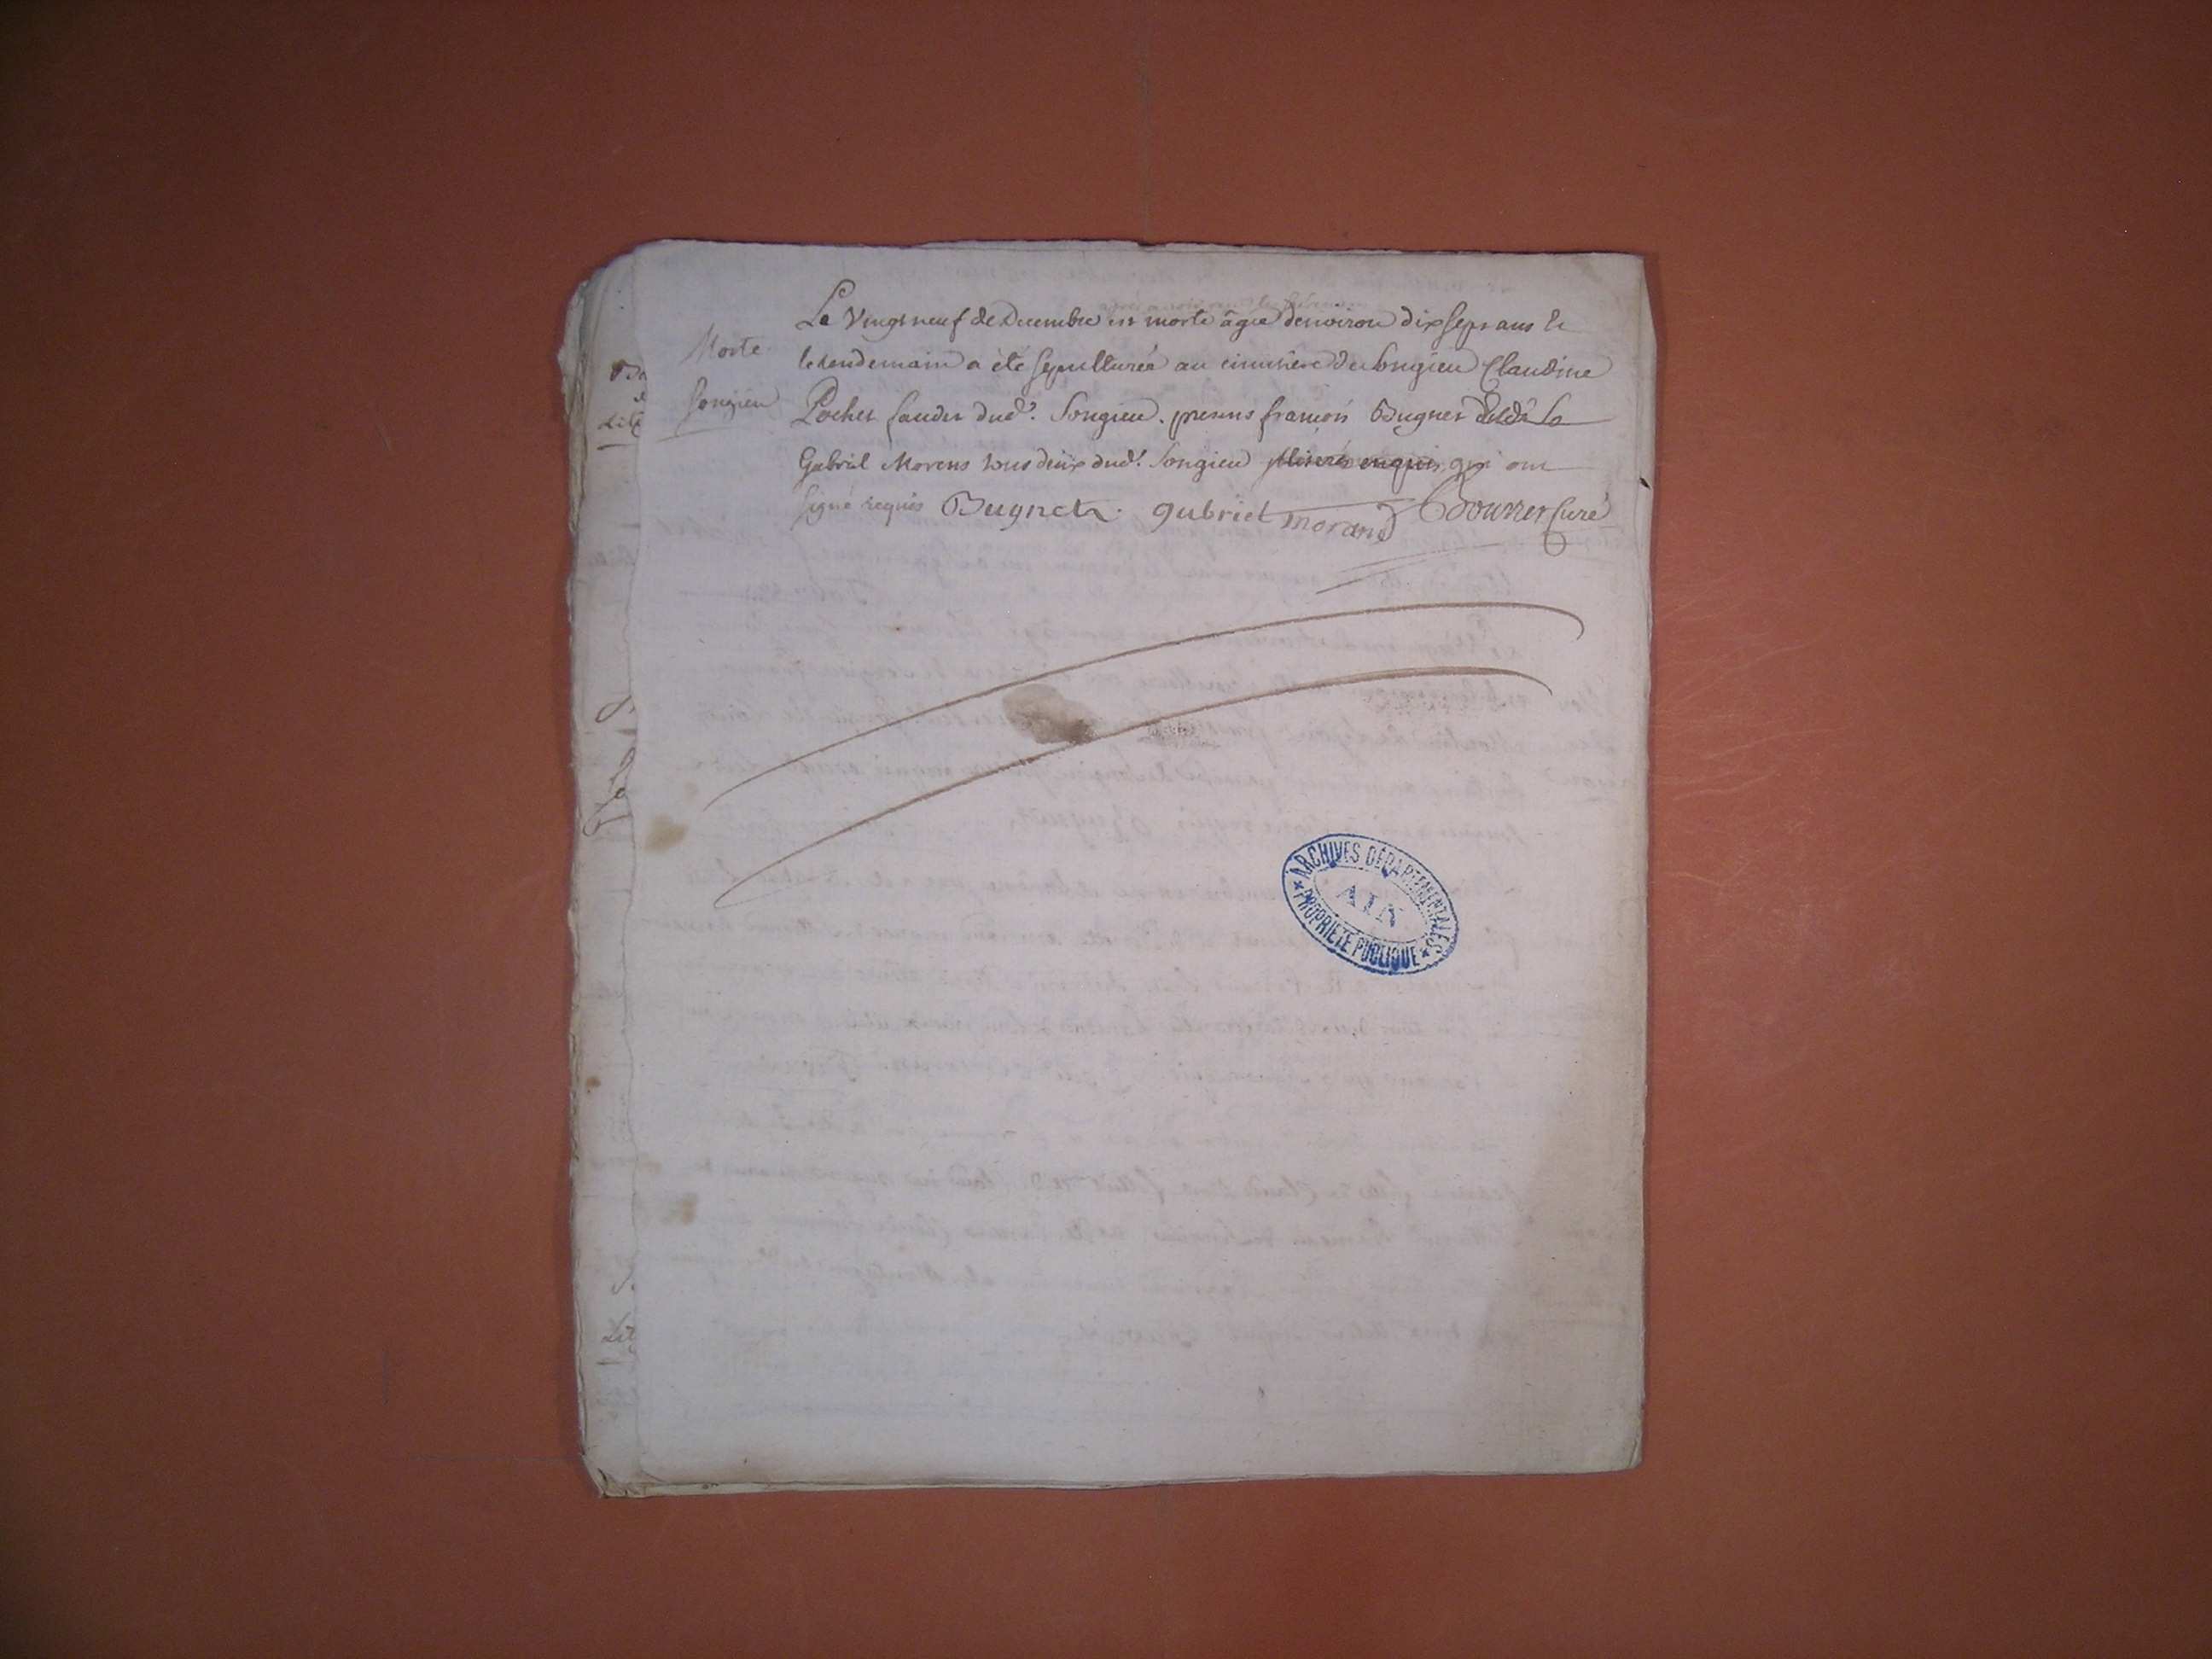 Le Vingt neuf de Decembre est morte âgée denviron dix sept ans &
Morte
le lendemain a été sepulturée au cimetiere de Songieu Claudine
Songieu
Pochet dud.t Songieu. presens françois Bugnet
Gabriel Morens tous deux dud.t Songieu qui ont
signé requis Bugnet. gabriel morand Bourret Curé
ARCHIVES DÉPARTEMENTALES
AIN
* PROPRIÉTÉ PUBLIQUE *